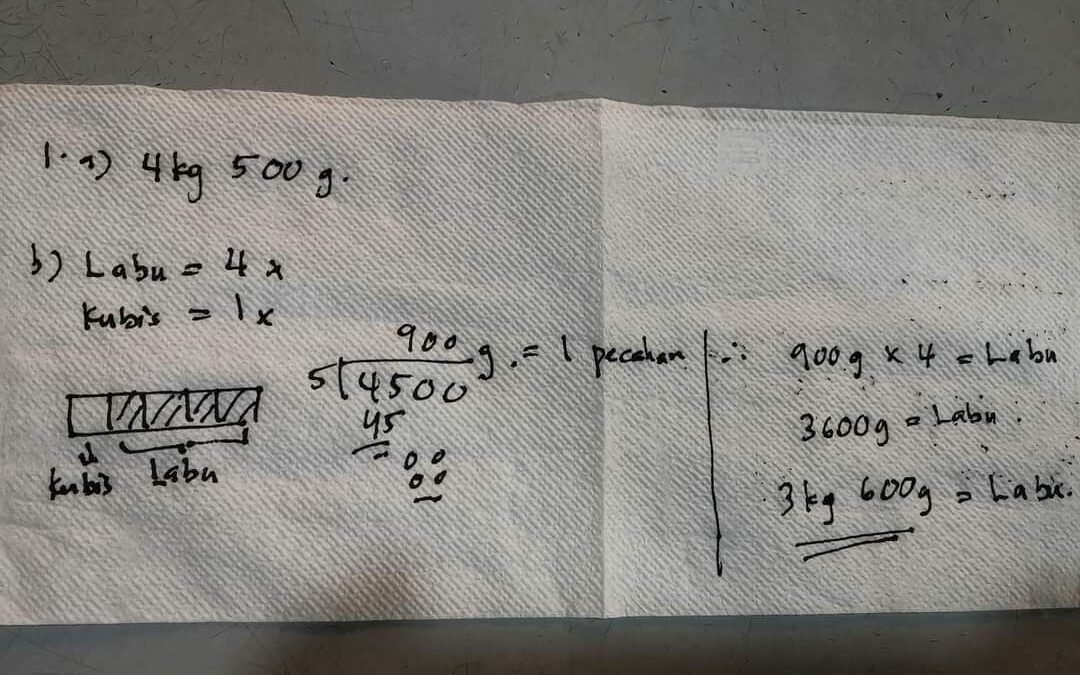 1. a) 4 kg 500 g.
b) Labu = 4 x
Kubis = 1 x
Kubis Labu
900 g. = 1 pecahan
5 4500
45
00
00
∴ 900 g x 4 = Labu
3600g = Labu.
3 kg 600g = Labu.